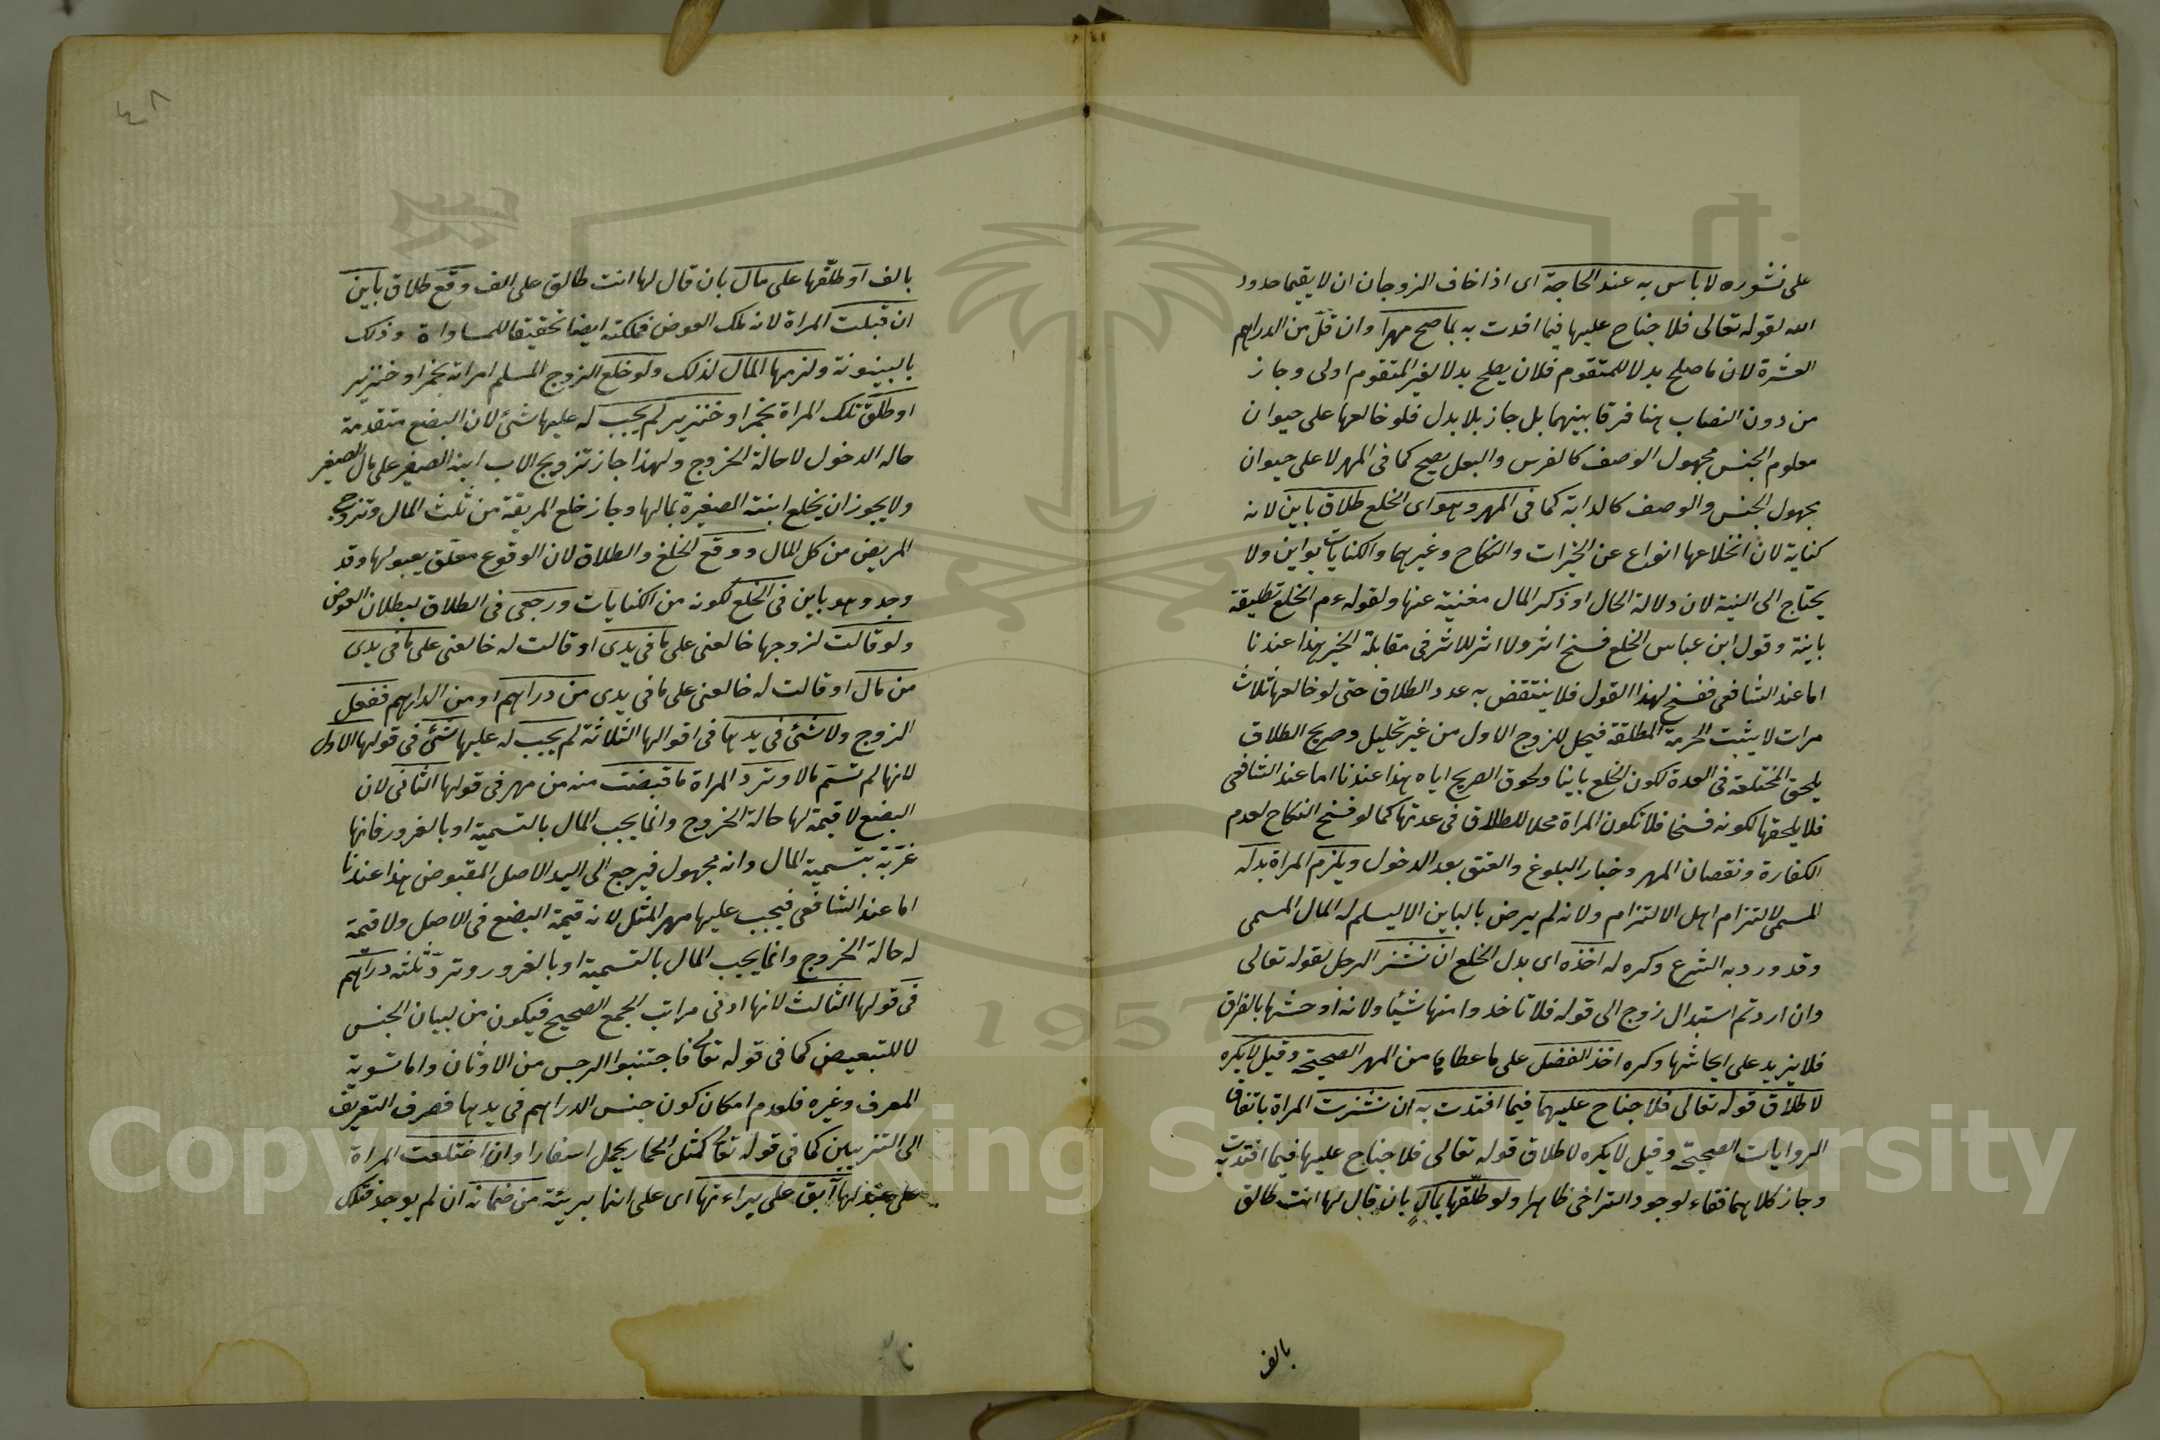 على نشوزه لا باس به عند الحاجة اى اذا خاف الزوجان ان لا يقيما حدود
الله لقوله تعالى فلا جناح عليها فيما افدت به بما صح مهرا وان قل من الدراهم
العشرة لان ما صلح بدلا للمتقوم فلان يصلح بدلا لغير المتقوم اولى وجاز
من دون النصاب هنا فرقا بينهما بل جاز بلا بدل فلو خالعها على حيوان
معلوم الجنس مجهول الوصف كالفرس والبعل يصح كما فى المهر لا على حيوان
مجهول الجنس والوصف كالدابة كما فى المهر وهو اى الخلع طلاق باين لانه
كناية لان انخلاعها انواع عن الخيرات والنكاح وغيرهما والكنايات بواين ولا
يحتاج الى النية لان دلالة الحال او ذكر المال مغنية عنها ولقوله عم الخلع تطليقة
باينة وقول ابن عباس الخلع فسخ اثر ولا اثر للاثر فى مقابلة الخبر هذا عندنا
اما عند الشافعى ففسخ لهذا القول فلا ينتقض به عدد الطلاق حتى لو خالعها ثلاث
مرات لا يثبت الحرمة المطلقة فيحل للزوج الاول من غير تحليل وصريح الطلاق
يلحق المختلعة فى العدة لكون الخلع باينا ولحوق الصريح اياه هذا عندنا اما عند الشافعى
فلا يلحقها لكونه فسخا فلا تكون المراة محلا للطلاق فى عدتها كما لو فسخ النكاح لعدم
الكفارة ونقصان المهر وخيار البلوغ والعتق بعد الدخول ويلزم المراة بدله
المسمى لالتزام اهل الالتزام ولانه لم يرض بالباين الا ليسلم له المال المسمى
وقد ورد به الشرع وكره له اخذه اى بدل الخلع ان نشز الرجل لقوله تعالى
وان اردتم استبدال زوج الى قوله فلا تاخذوا منها شيئا ولانه اوحشها بالفراق
فلا يزيد على ايحاشها وكره اخذ الفضل على ما عطاها من المهر الصحيحة وقيل لا يكره
لاطلاق قوله تعالى فلا جناح عليهما فيما افتدت به ان نشزت المراة باتفاق
الروايات الصحيحة وقيل لا يكره لاطلاق قوله تعالى فلا جناح عليها فيما افتدت به
وجاز كلاهما قضاء لوجود التراخى ظاهرا ولو طلقها بمال بان قال لها انت طالق
بالف
٤٨
بالف او طلقها على مال بان قال لها انت طالق على الف وقع طلاق باين
ان قبلت المراة لانه ملك العوض فملكته ايضا تحقيقا للمساواة وذلك
بالبينونة ولزمها المال لذلك ولو خلع الزوج المسلم امراته بخمر او خنزير
او طلق تلك المراة بخمر او خنزير لم يجب له عليها شئ لان البضع متقومة
حاله الدخول لا حالة الخروج ولهذا جاز تزويج الاب ابنه الصغير على مال الصغير
ولا يجوز ان يخلع ابنته الصغيرة بمالها وجاز خلع المريضة من ثلث المال وتزوج
المريض من كل المال ووقع الخلع والطلاق لان الوقوع معلق بقبولها وقد
وجد وهو باين فى الخلع لكونه من الكنايات ورجعى فى الطلاق لبطلان العوض
ولو قالت لزوجها خالعنى على ما فى يدى او قالت له خالعنى على ما فى يدى
من مال او قالت له خالعنى على ما فى يدى من دراهم او من الدراهم ففعل
الزوج ولا شئ فى يدها فى اقوالها الثلاثة لم يجب له عليها شئ فى قولها الاول
لانها لم تسم مالا وترد المراة ما قبضت منه من مهر فى قولها الثانى لان
البضع لا قيمة لها حالة الخروج وانما يجب المال بالتسمية او بالغرور فانها
غرته بتسمية المال وانه مجهول فيرجع الى اليد الاصل المقبوض هذا عندنا
اما عند الشافعى فيجب عليها مهر المثل لانه قيمة البضع فى الاصل ولا قيمة
له حالة الخروج وانما يجب المال بالتسمية او بالغرور وترد ثلثه دراهم
فى قولها الثالث لانها ادنى مراتب الجمع الصحيح فيكون من لبيان الجنس
لا للتبعيض كما فى قوله تعالى فاجتنبوا الرجس من الاوثان واما تسوية
المعرف وغيره فلعدم امكان كون جنس الدراهم فى يدها فصرف التعريف
الى التزيين كما فى قوله تعالى كمثل الحمار يحمل اسفارا وان اختلعت المراة
على عبد لها آبق على براءتها اى على انها بريئة من ضمانه ان لم يوجد فتلك